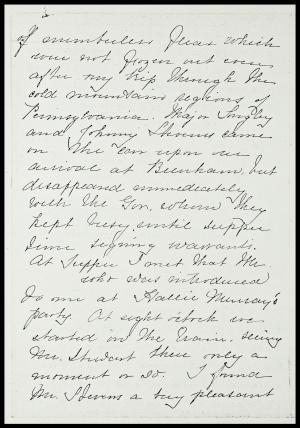 of numberless fleas which
were not frozen out even
after my trip through the
cold mountains regions of
Pennsylvania. Major
and Johnny came
on the car upon our
arrival at but
disappeared immediately
with the Gov. whom they
kept busy until supper
time signing warrants.
At Supper I met that Mr.
who was introduced
to me at Hallie Murray's
party. At eight oclock we
started on the train. seeing
Mr. there only a
moment or so. I found
Mr. Stevens a very pleasant